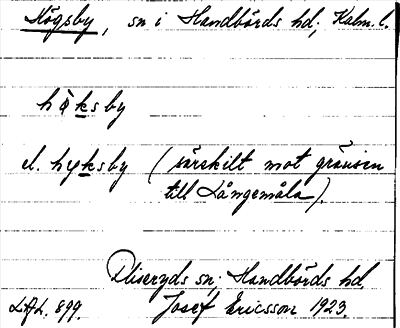 Högsby, sn i Handbörds hd; Kalm. l.
höksby
el. hyksby (särskilt mot gränsen
till Långemåla).
Fliseryds sn; Handbörds hd.
L.A.L. 899. Josef Ericsson 1923.